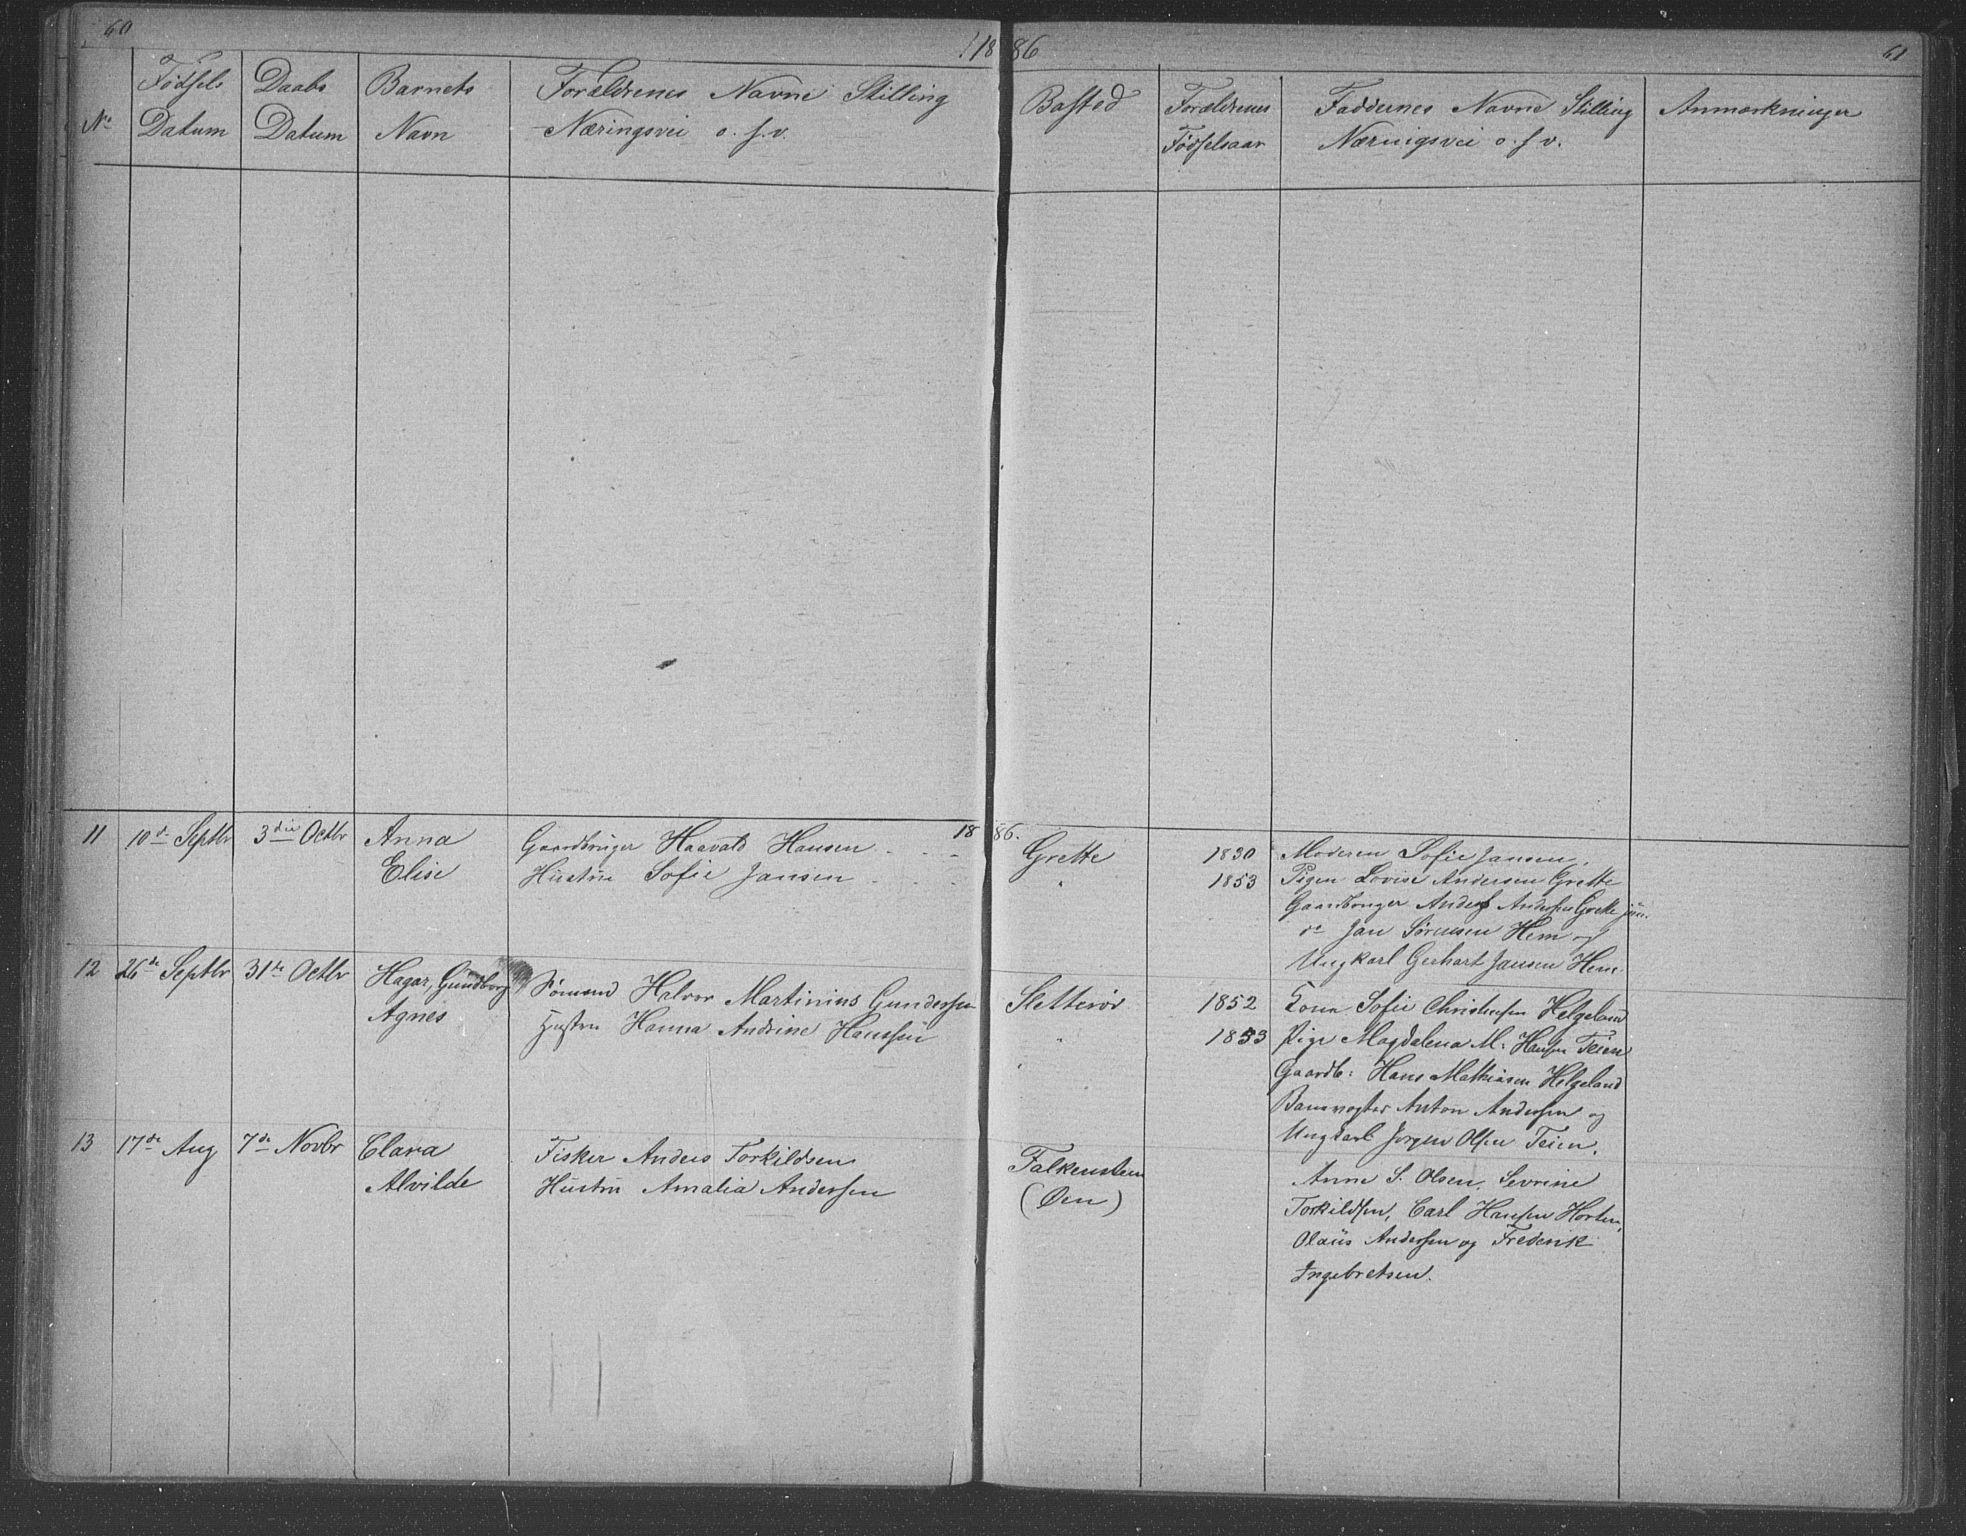 60
1886
61
No
Fødsels Datum
Daabs Datum
Barnets Navn
Forældrenes Navne Stilling
Næringsvei o. s. v.
Bosted
Forældrenes Fødselsaar
Faddernes Navne Stilling
Næringsvei o. s. v.
Anmærkninger
1886.
11 10de Septbr 3die Octbr Anna Elise
Gaardbruger Haavald Hansen
Hustru Sofie Jansen
Grette
"
1830
1853
Moderen Sofie Jansen,
Pigen Lovise Andersen Grette
Gaardbruger Anders Andersen Grette jun.
do Jan Sørensen Hem og
Ungkarl Gerhart Jansen Hem.
12 26de Septbr 31te Octbr Hagar, Gundborg
Agnes
Sømand Halvor Martinius Gundersen
Hustru Hanna Andrine Hanssen
Sletterør
"
1852
1853
Kone Sofie Christensen Helgeland
Pige Magdalena M. Hansen Teien
Gaardb: Hans Mathiasen Helgeland
Banevogter Anton Andersen og
Ungkarl Jørgen Olsen Teien.
13 17de Aug 7de Novbr Clara
Alvilde
Fisker Anders Torkildsen
Hustru Amalia Andersen
Falkensten
(Øen)
Anne S. Olsen, Sevrine
Torkildsen, Carl Hansen Horten,
Olaüs Andersen og Frederik
Ingebretsen.